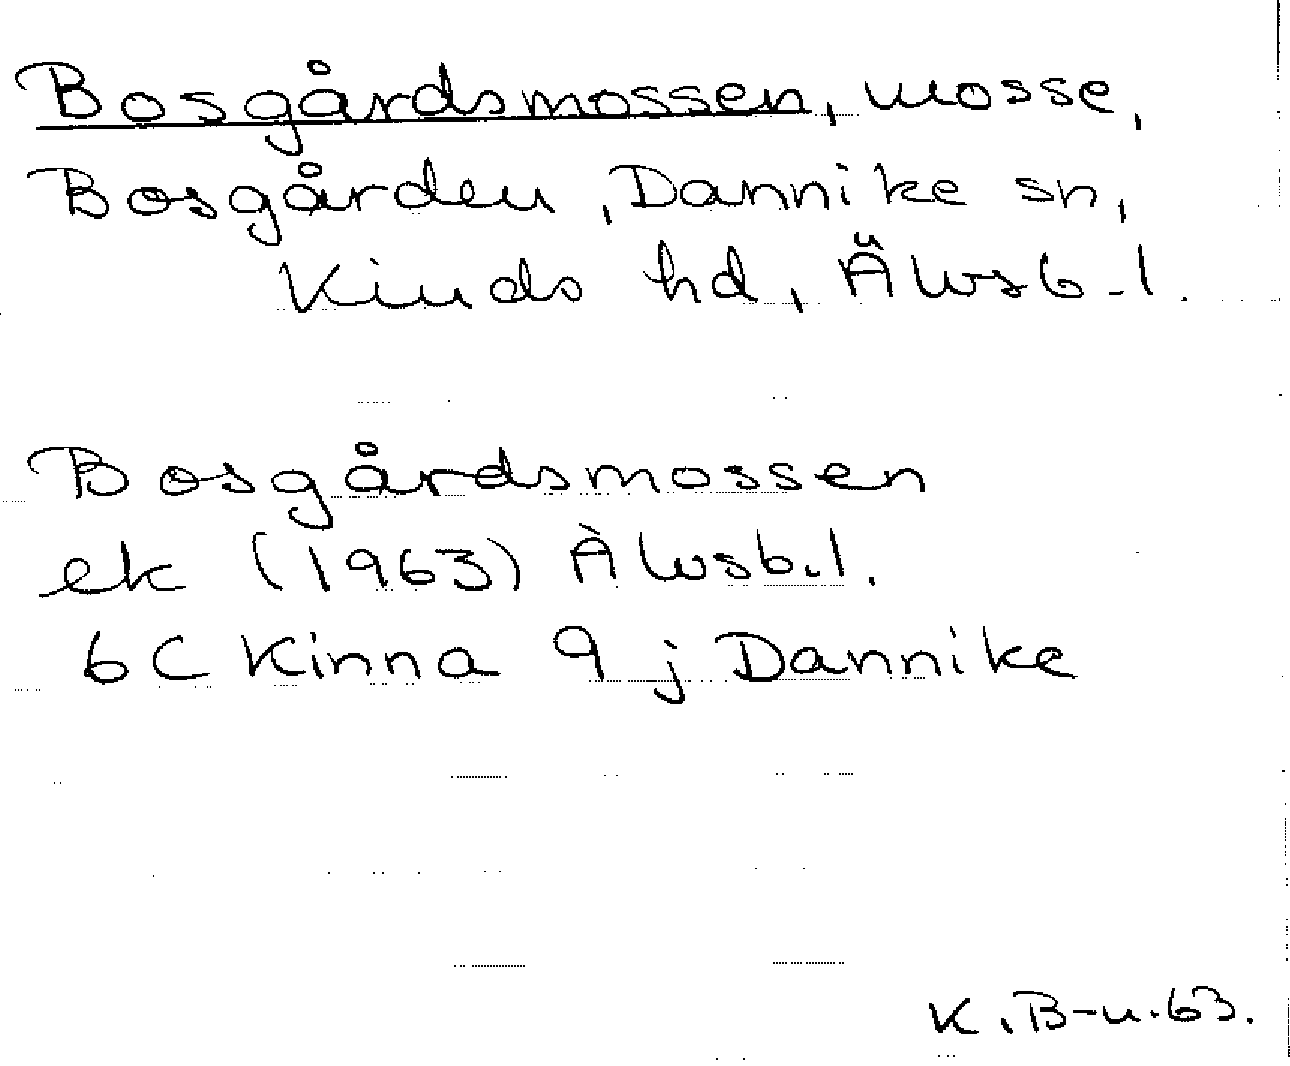 Bosgårdsmossen, mosse,
Bosgården, Dannike sn,
Kinds hd, Älvsb.l.
Bosgårdsmossen
ek (1963) Älvsb.l.
6C Kinna 9j Dannike
K.B-n.63.